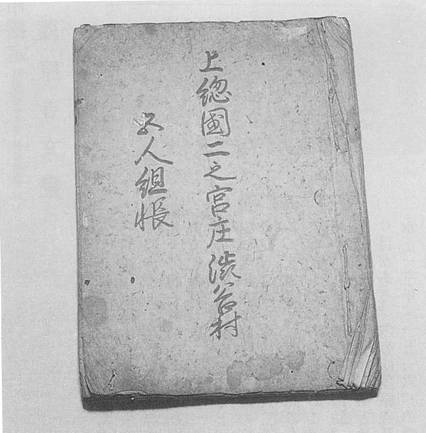 上總國二之宮庄澁谷村
五人組帳